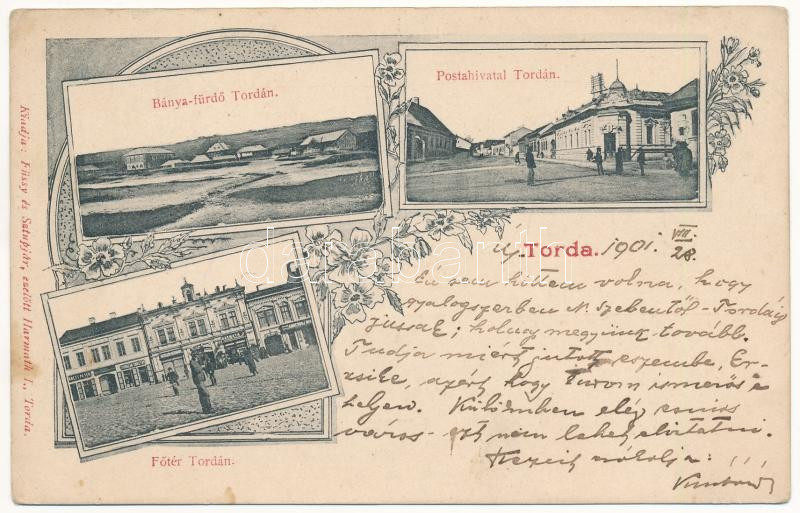 Bánya-fürdő Tordán.
Postahivatal Tordán.
Főtér Tordán.
Kiadja: Füssy és Sztupjár, ezelőtt Harmath I., Torda.
Torda. 1901. VIII. 28.
Én sem hittem volna, hogy
gyalogszerben N. Szebentől - Tordáig
jussak; holnap megyünk tovább.
Tudja miért jutott eszembe, Er-
zsike, azért hogy ismerős e
helyen. Különben elég csinos
város - ezt nem lehet elvitatni.
Kezeit csókolja:
darabanth